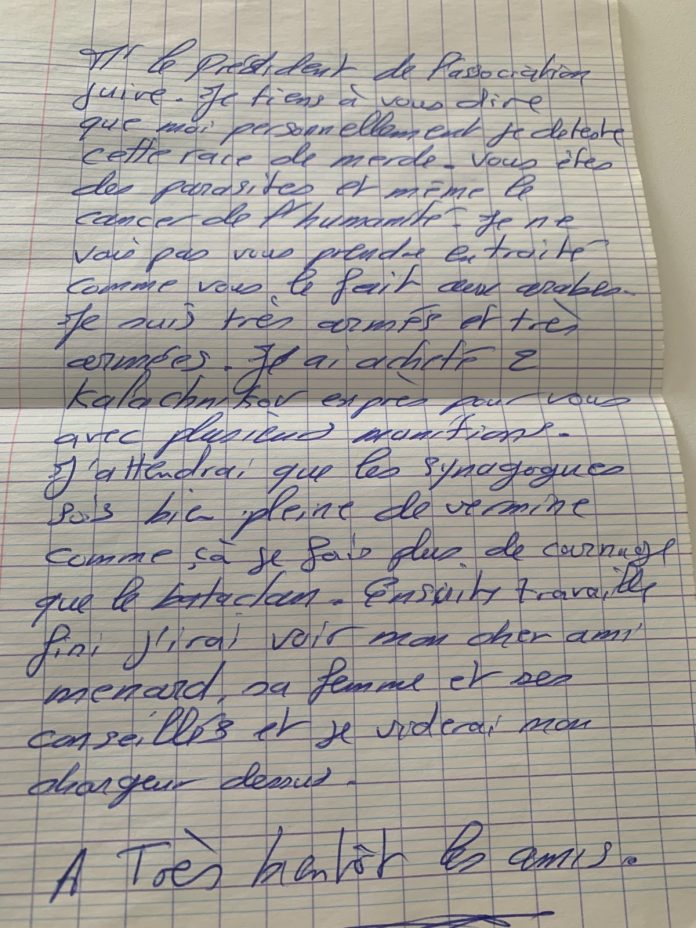 Mr le Président de l'association
juive. Je tiens à vous dire
que moi personnellement je deteste
cette race de merde. Vous êtes
des parasites et même le
cancer de l'humanité. Je ne
vais pas vous prendre en traité
comme vous le fait aux arabes.
Je suis très armés et très
armées. Je ai acheté 2
Kalachnikov exprès pour vous
avec plusieurs munitions.
J'attendrai que les synagogues
sois bien pleine de vermine
comme çà je fais plus de carnage
que le bataclan. Ensuite travaille
fini j'irai voir mon cher ami
menard, sa femme et ses
conseillés et je viderai mon
chargeur dessus.
A Très bientôt les amis.